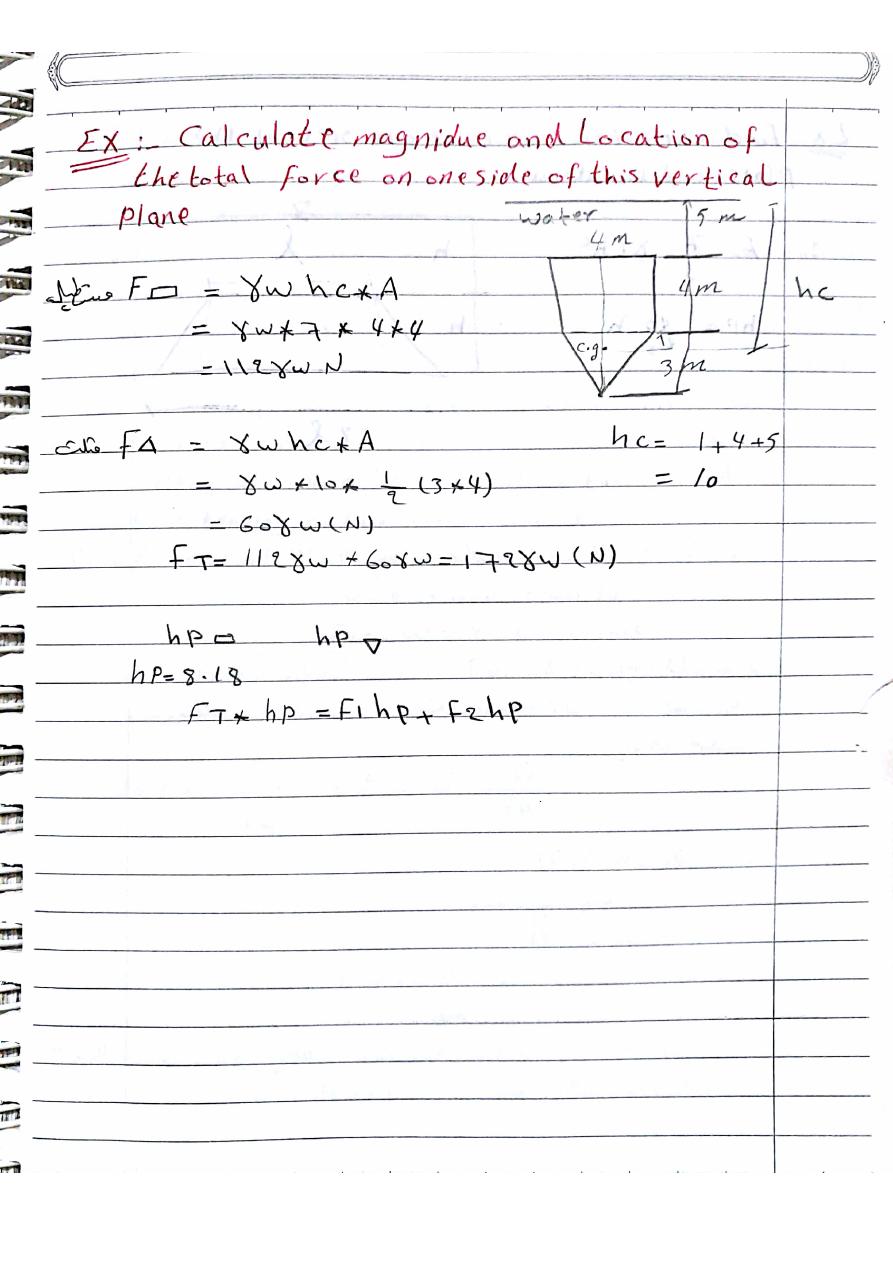 EX :- Calculate magnidue and Location of
the total force on one side of this vertical
plane
water
5 m
4 m
4m
hc
c.g.
1
3 m
مستطيل F▭ = γw hc * A
= γw * 7 * 4 * 4
= 112 γw N
مثلث F∆ = γw hc * A
hc = 1 + 4 + 5
= γw * 10 * 1/2 (3 * 4)
= 10
= 60 γw (N)
FT = 112 γw + 60 γw = 172 γw (N)
hp ▭ hp ▽
hp = 8.18
FT * hp = F1 hp + F2 hp